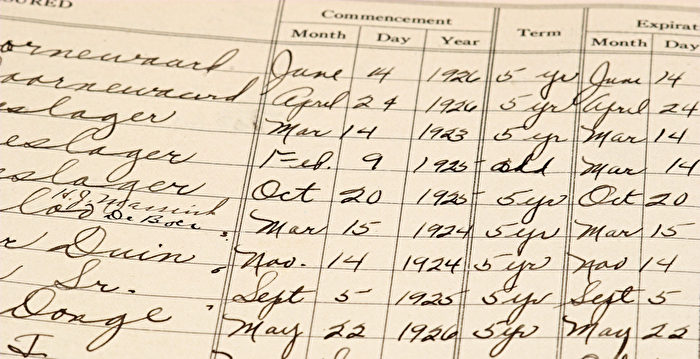 URED Commencement Expirat
Month Day Year Term Month Day
oornewaard June 4 1926 5 yr June 14
oornewaard April 24 1926 5 yr April 24
eslager Mar 14 1923 5 yr Mar 14
eslager Feb. 9 1925 add Mar 14
eslager Oct 20 1925 5 yr Oct 20
De Boer Mar 15 1924 5 yr Mar 15
r Duin Nov. 14 1924 5 yr Nov 14
Sr. Sept 5 1925 5 yr Sept 5
Donge May 22 1926 5 yr May 22